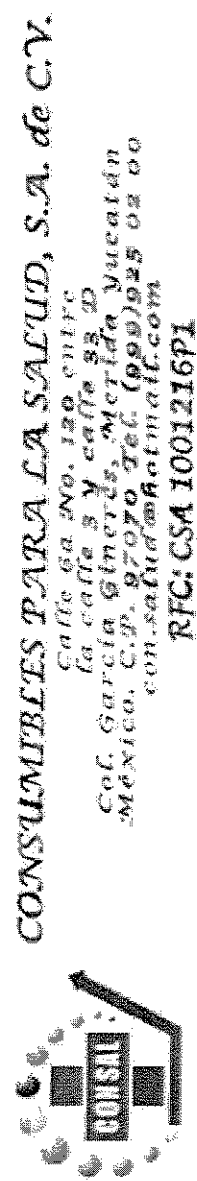 CONSUMIBLES PARA LA SALUD, S.A. de C.V.
Calle 6a No. 120 entre
la calle 3 y calle 33 D
Col. García Ginerés, Merida Yucatán
México. C.P. 97070 Tel. (999)925 02 00
con.salud@hotmail.com
RFC: CSA 1001216P1
CONSAL